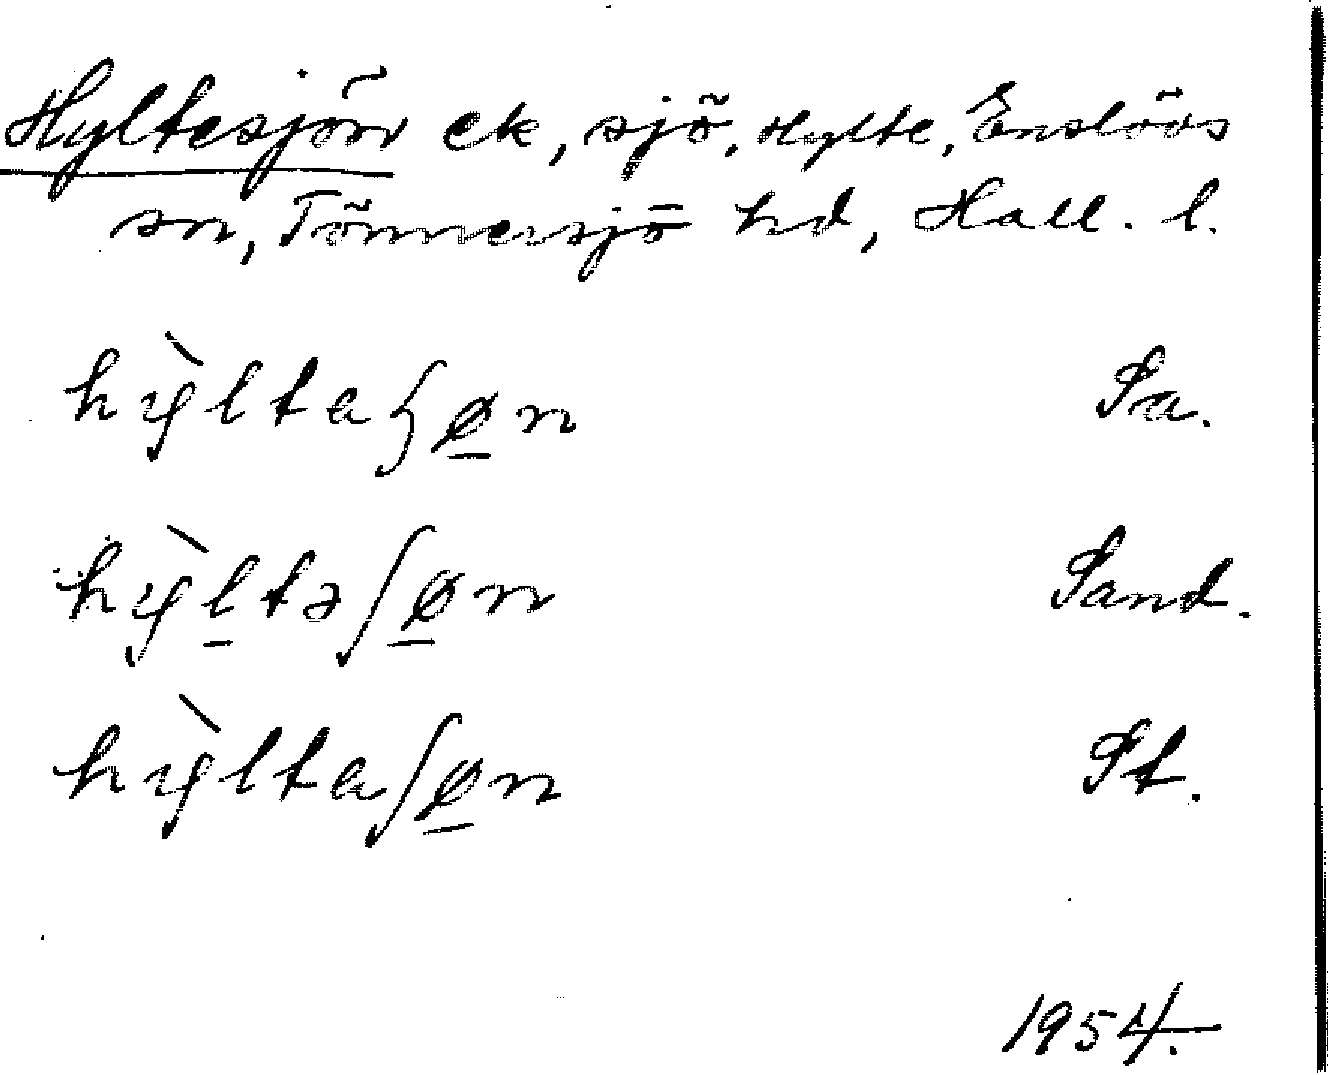 Hyltesjön ek, sjö, Hylte, Enslövs
sn, Tönnersjö hd, Hall. l.
hỳltaʃø̠n Sa.
hỳl̠təʃø̠n Sand.
hỳltaʃø̠n St.
1954.